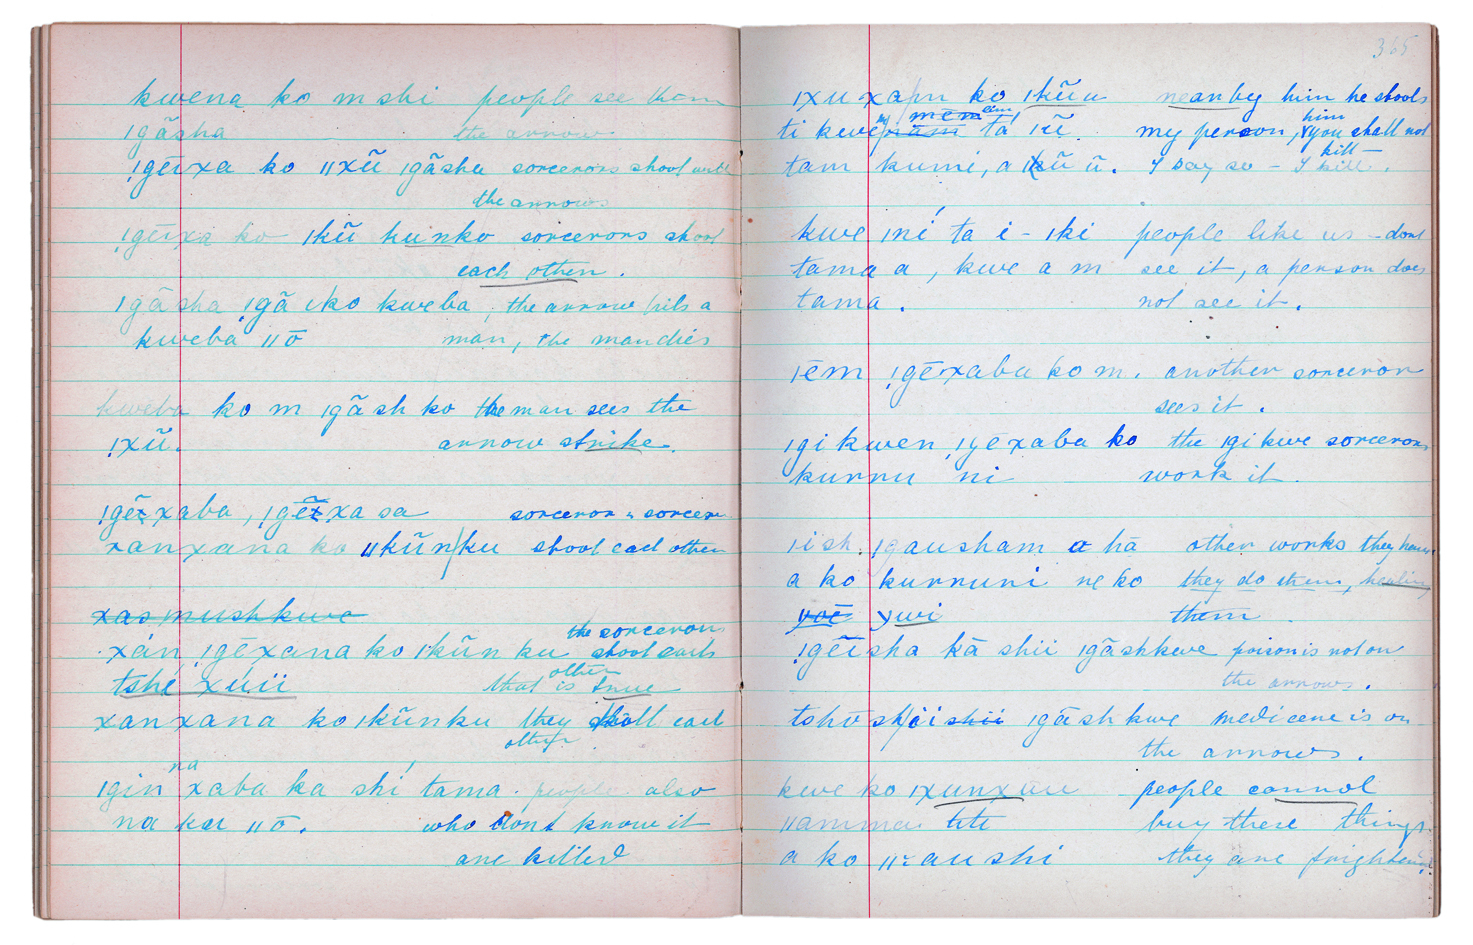 kwena ko m shi people see them
ıgãsha the arrow.
!gēıxa ko ııxũ ıgãsha sorcerors shoot with
the arrows
!gēıxa ko ıkũ kunko sorcerors shoot
each other.
ıgãsha !gã cko kweba, the arrow hits a
kweba ııō man, the man dies
kweba ko m ıgãsh ko the man sees the
!xũ. arrow strike.
xaba, xa sa sorceror & sorcerer
xanxana ko ııkũn/ku shoot each other
xas mushkwe
the sorcerors
xán !gēxana ko ıkũn ku shoot each
other
tshé xúıı that is true
xanxana ko ıkũnku they shoot each
other
na
ıgin xaba ka shí tama. people also
na kaı ııō. who dont know it
are killed
365
ıxu xapn ko ıkũ u nearby him he shoots
him
ti kwe ta ıũ. my person, you shall not
kill
tam kumi, a kũ ũ. I say so - I kill.
kwe ıní ta i - ıki people like us - dont
tama a, kwe a m see it, a person does
tama. not see it.
ıēm !gēıxaba ko m. another sorceror
sees it.
ıgi kwen !gēxaba ko the ıgi kwe sorcerors
kurru ni work it.
ıish ıgausham a hā other works they have
a ko kurruni ne ko they do them, healing
yoē yuwi them.
!gēisha kā shii ıgãshkwe poison is not on
the arrows.
shii ıgāsh kwe medicene is on
the arrows.
kwe ko ıxunxũu people cannot
ııamma titi buy these things.
a ko aushi they are frightened.